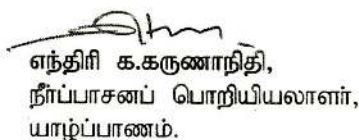 எந்திரி க.கருணாநிதி,
நீர்ப்பாசனப் பொறியியலாளர்,
யாழ்ப்பாணம்.